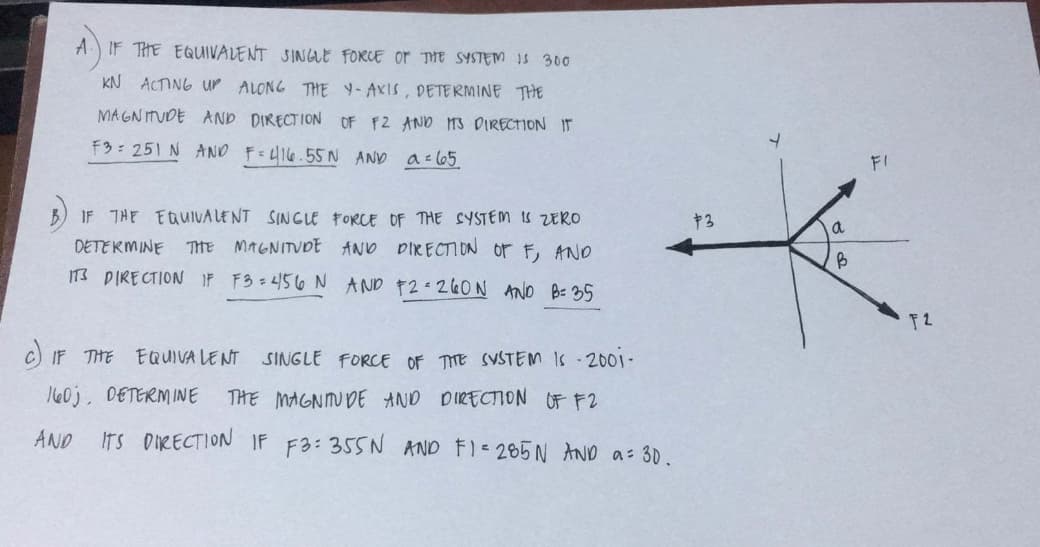 A.) IF THE EQUIVALENT SINGLE FORCE OF THE SYSTEM IS 300
KN ACTING UP ALONG THE Y-AXIS, DETERMINE THE
MAGNITUDE AND DIRECTION OF F2 AND ITS DIRECTION IF
F3 = 251 N AND F = 416.55 N AND a = 65
B) IF THE EQUIVALENT SINGLE FORCE OF THE SYSTEM IS ZERO
DETERMINE THE MAGNITUDE AND DIRECTION OF F, AND
ITS DIRECTION IF F3 = 456 N AND F2 = 260 N AND B = 35
C) IF THE EQUIVALENT SINGLE FORCE OF THE SYSTEM IS -200i-
160j, DETERMINE THE MAGNITUDE AND DIRECTION OF F2
AND ITS DIRECTION IF F3 = 355N AND F1 = 285N AND a = 30.
Y
F1
F3
a
B
F2